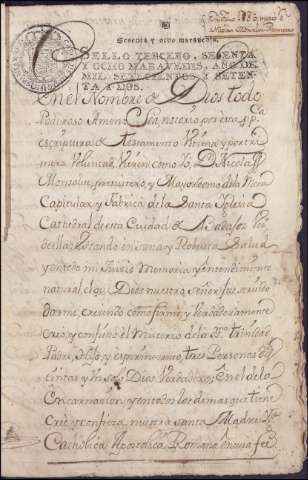 Sesenta y ocho maravedis.
SELLO TERCERO, SESENTA
Y OCHO MARAVEDIS, AÑO DE
MIL SETECIENTOS Y SETEN-
TA Y DOS.
En el Nombre de Dios todo
Poderoso Amen. Sea notorio
escriptura de testamento Ultima y postri
mera Voluntad, Vieren como Yo, D. Nicolas
Montalvo, presvitero, y Mayordomo de la Mesa
Capitular, y Fabrica de la Santa Yglesia
Cathedral de esta Ciudad de Badajoz
estando en sana y Robusta Salud
y en todo mi Juicio Memoria y entendimiento
natural, el que Dios nuestro Señor fue servido
darme, creyendo como firme, y Verdaderamente
Creo, y confieso el Misterio de la SS. trinidad
Padre, Hijo, y espiritu santo, tres Personas dis
tintas y Un solo Dios Verdadero, En el de la
Encarnacion, y en todos los demas que tiene
Cree y confiesa nuestra Santa Madre Yg.
Catholica Apostolica Romana en cuya fee